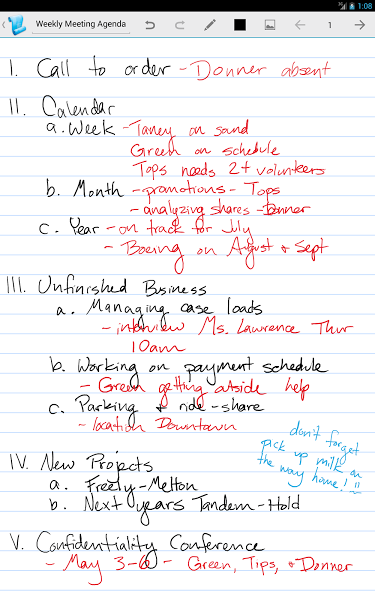 1:08
Weekly Meeting Agenda
1
I. Call to order - Donner absent
II. Calendar
a. Week - Taney on sand
Green on schedule
Tops needs 2+ volunteers
b. Month - promotions - Tops
- analyzing shares - Donner
c. Year - on track for July
- Boeing on August & Sept
III. Unfinished Business
a. Managing case loads
- interview Ms. Lawrence Thur
10am
b. Working on payment schedule
- Green getting outside help
c. Parking & ride-share
- location Downtown
don't forget
pick up milk on
the way home!!!
IV. New Projects
a. Freely - Melton
b. Next years Tandem - Hold
V. Confidentiality Conference
- May 3-6 - Green, Tips, & Donner